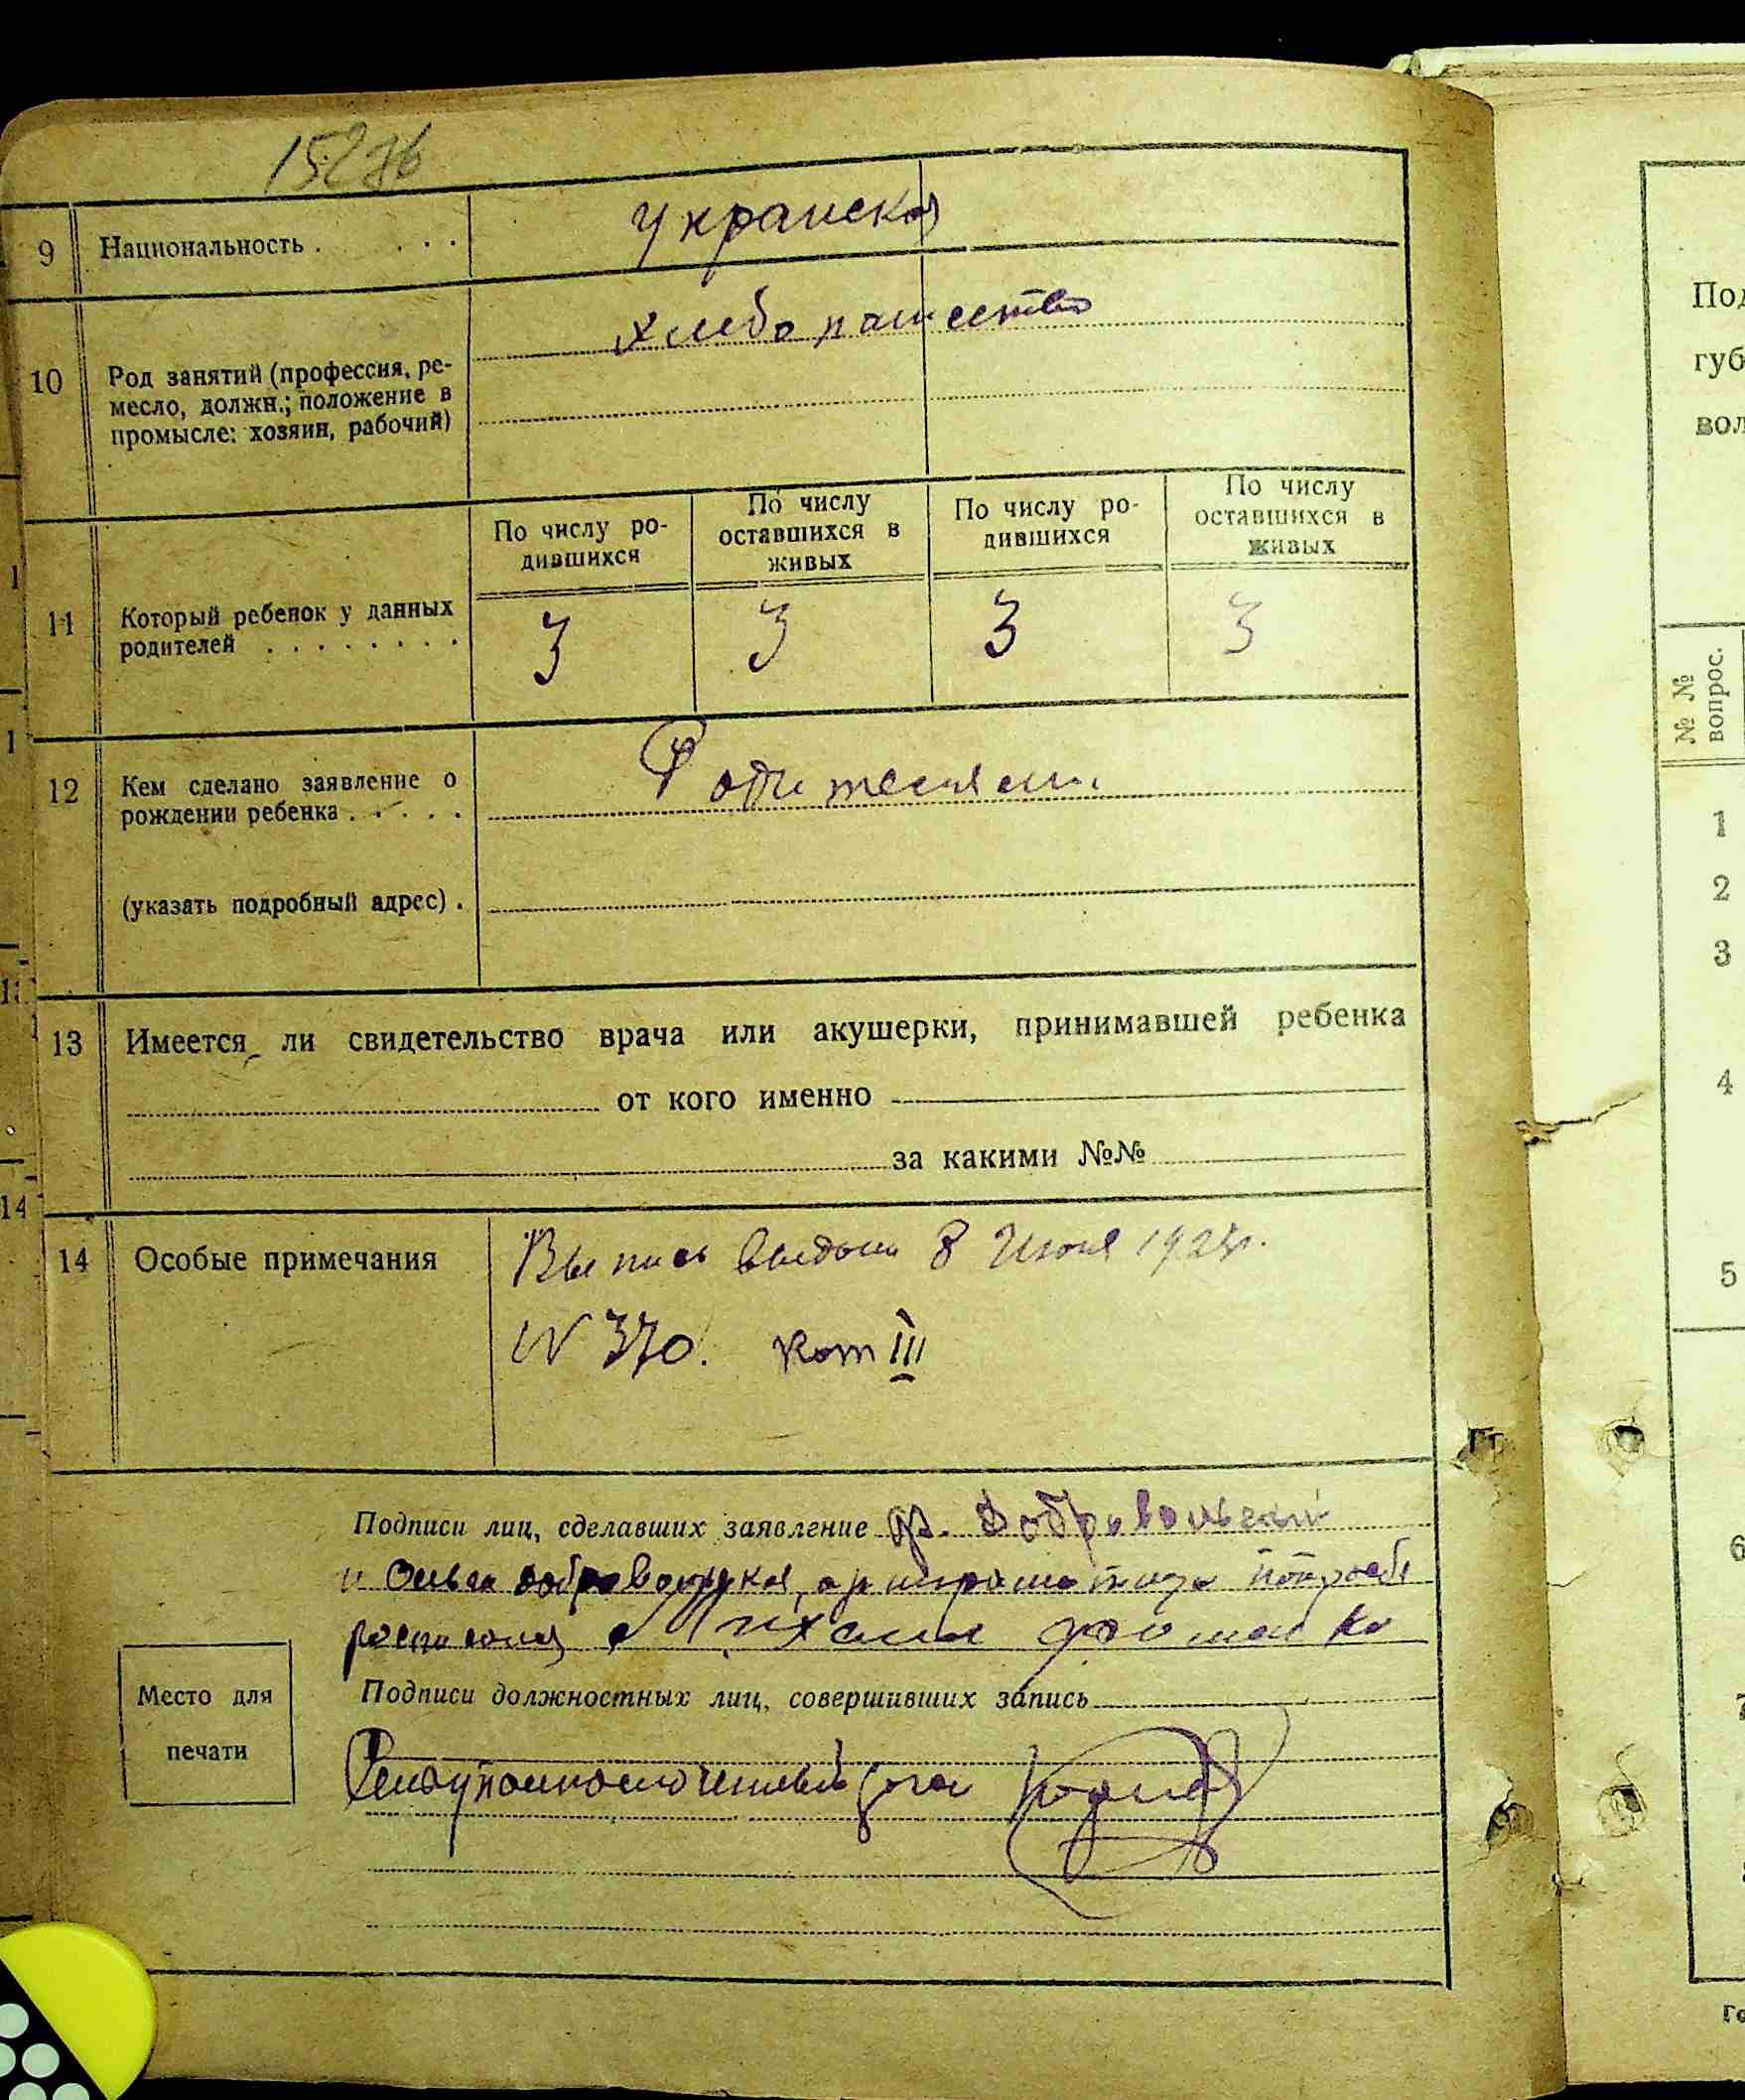 9 Национальность . . . . украиская
10 Род занятий (профессия, ре-
месло, должн.; положение в
промысле: хозяин, рабочий)
хлебопашество
11 Который ребенок у данных
родителей . . . . . . . .
По числу ро-
дившихся
По числу
оставшихся в
живых
По числу ро-
дившихся
По числу
оставшихся в
живых
3 3 3 3
12 Кем сделано заявление о
рождении ребенка . . . . .
Родителями
(указать подробный адрес) .
13 Имеется ли свидетельство врача или акушерки, принимавшей ребенка
от кого именно
за какими №№
14 Особые примечания
Выпись выдана 8 Июня
N 370. кат III
Подписи лиц, сделавших заявление Добровольский
и Ольга Добровольская,
росписался Михаил
Место для
печати
Подписи должностных лиц, совершивших запись
Под
губ
вол
№ №
вопрос.
1
2
3
4
5
6
7